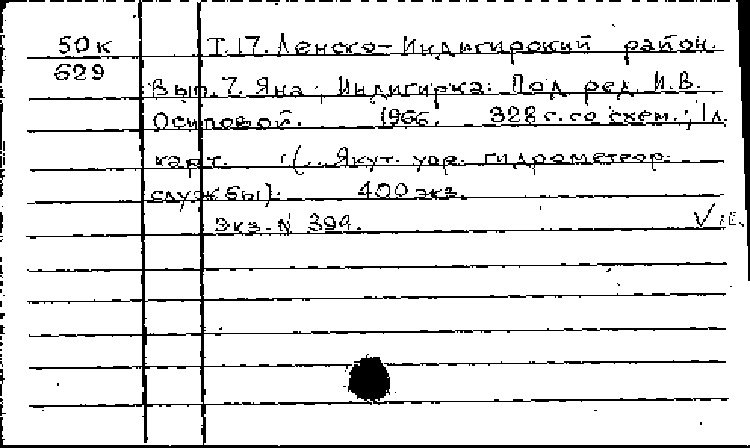 50к
629
Т.17. Ленско-Индигирский район.
Вып.7. Яна - Индигирка. Под ред. И.В.
Осиповой. 1966. 328 с. со схем.; 1 л.
карт. (... Якут. упр. гидрометеор.
службы). 400 экз.
Экз. N 394.